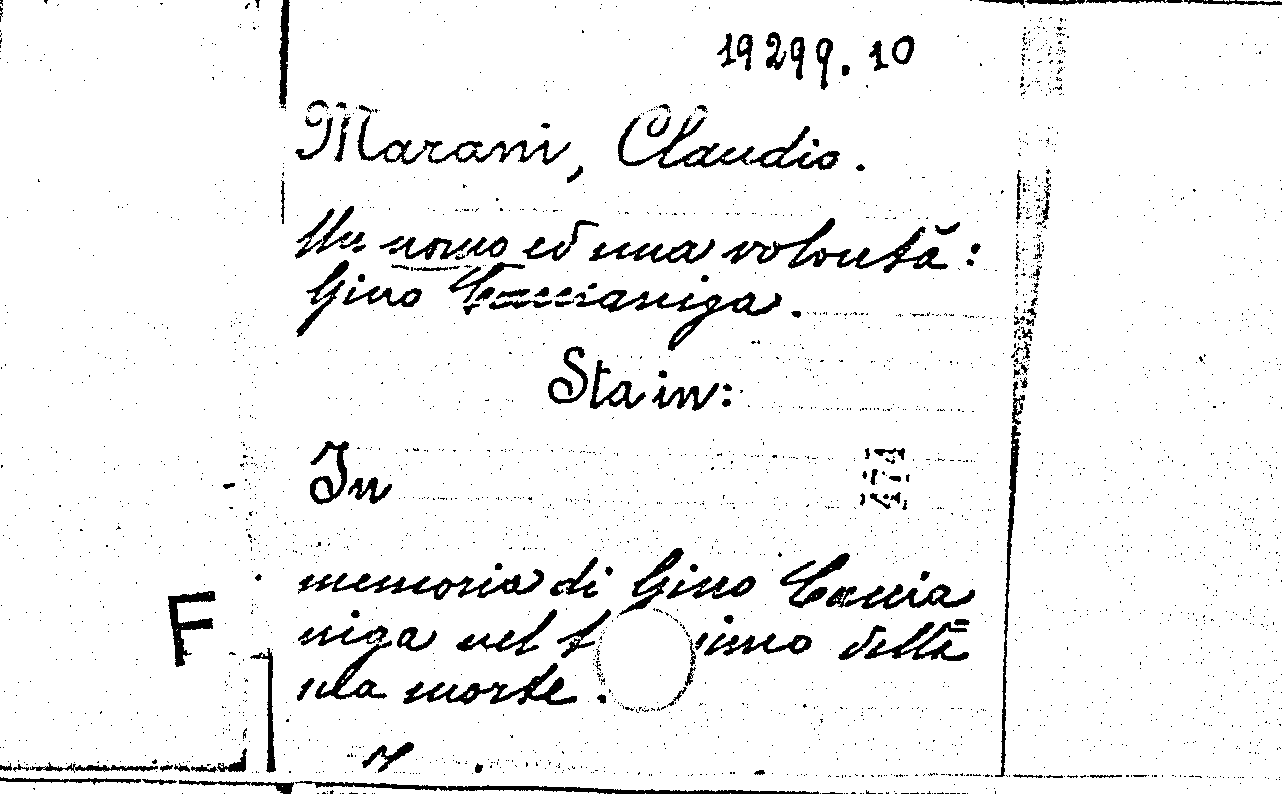 19299.10
Marani, Claudio.
Un uomo ed una volontà:
Gino Caccianiga.
Sta in:
In
memoria di Gino Caccia
niga nel t imo della
sua morte.
F